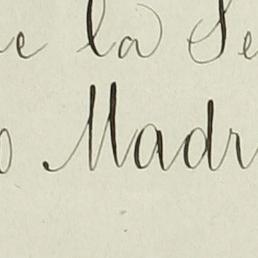 e la Se
o Madr